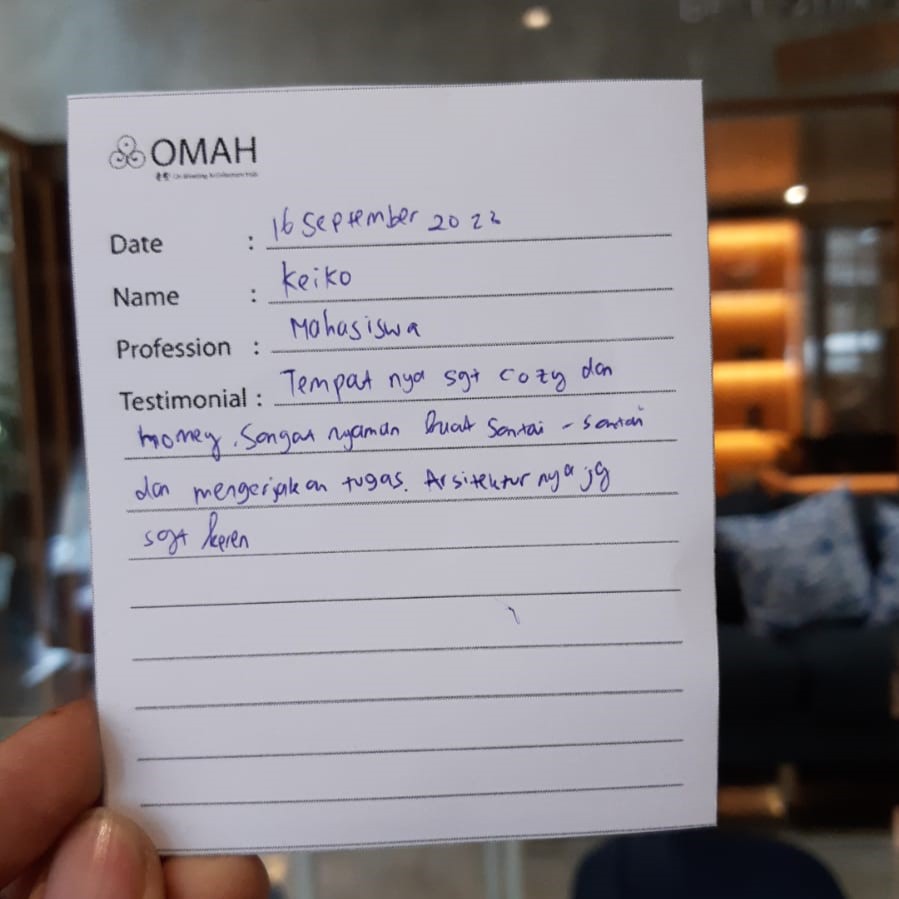 OMAH
Date : 16 September 2022
Name : Keiko
Profession : Mahasiswa
Testimonial : Tempat nya sgt cozy dan
homey. Sangat nyaman buat santai - santai
dan mengerjakan tugas. Arsitektur nya jg
sgt keren